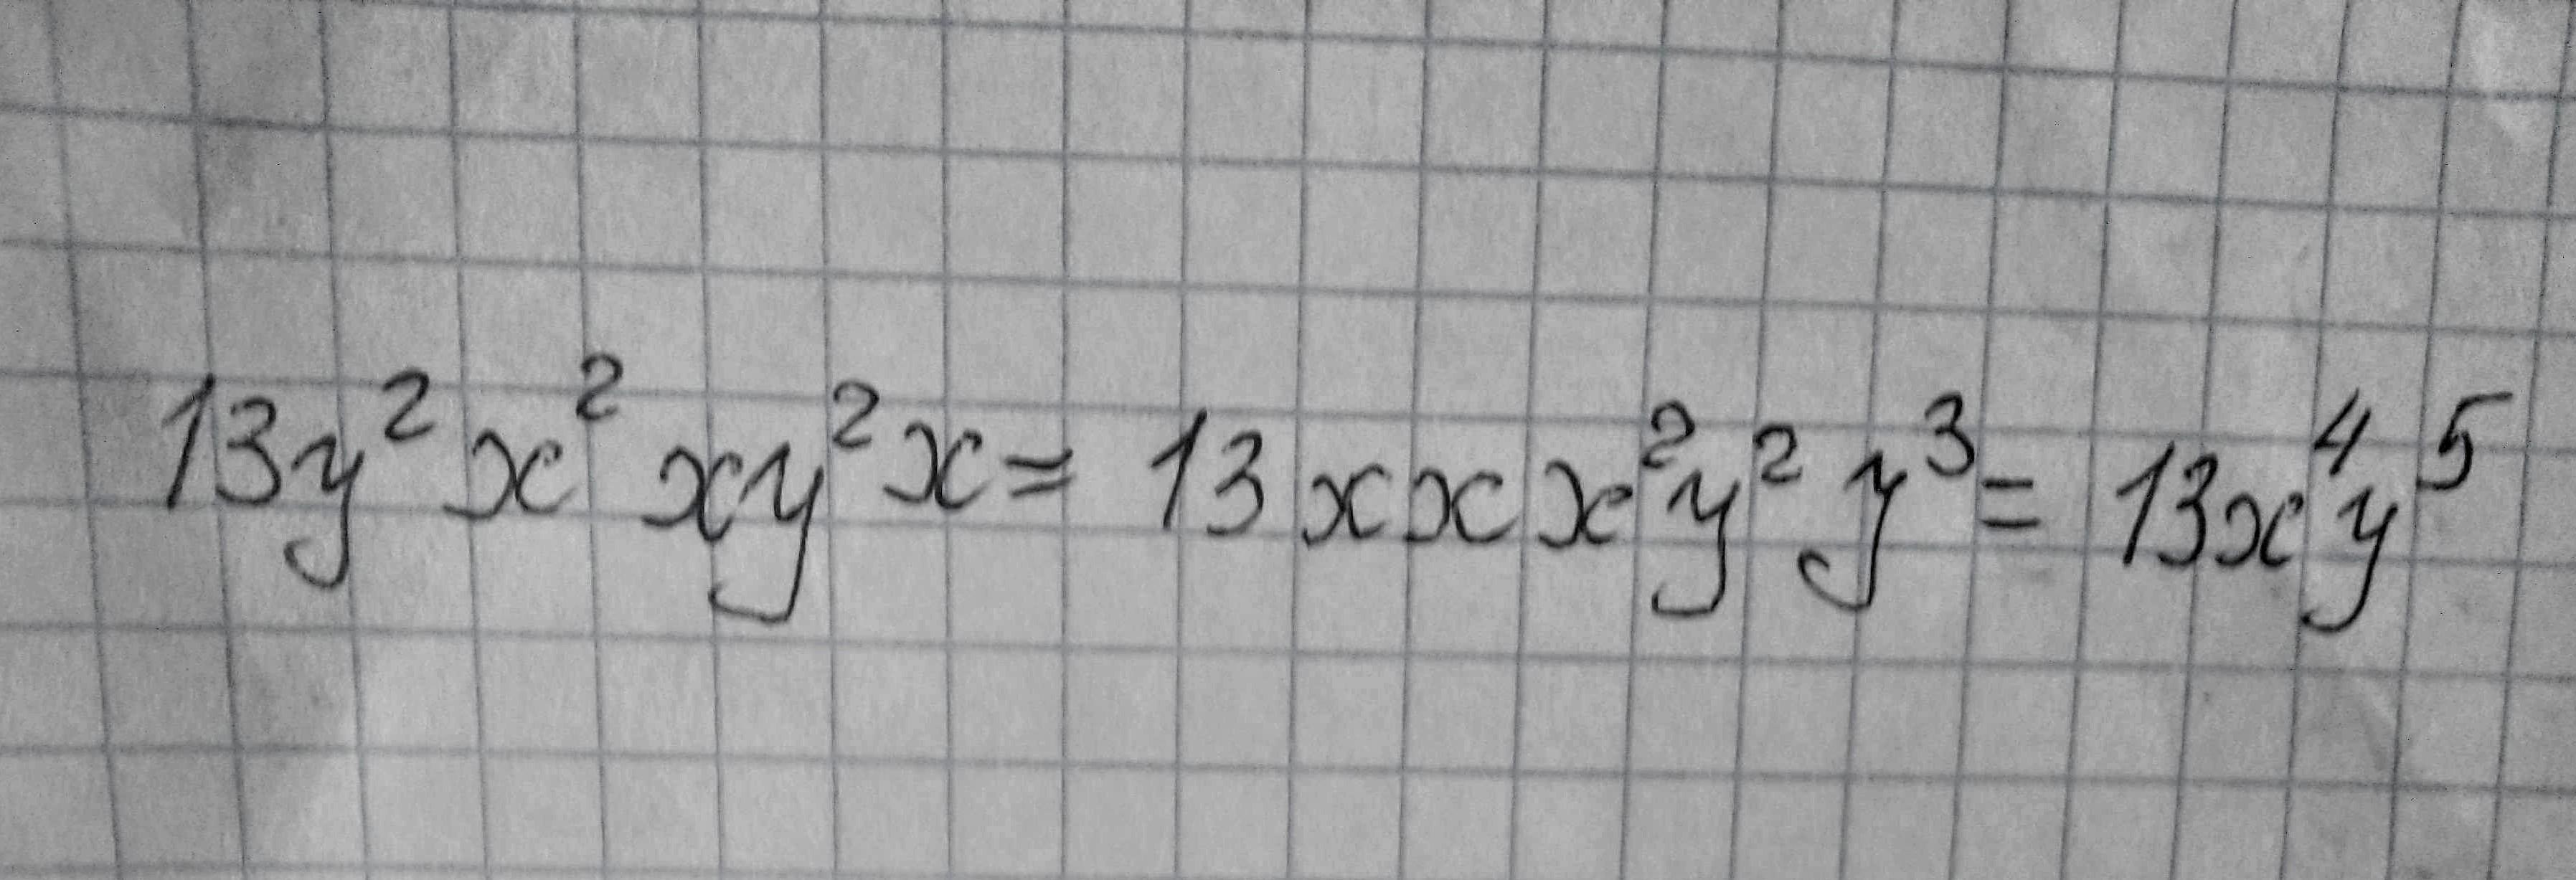 13y²x² xy²x = 13xxx²y²y³ = 13x⁴y⁵